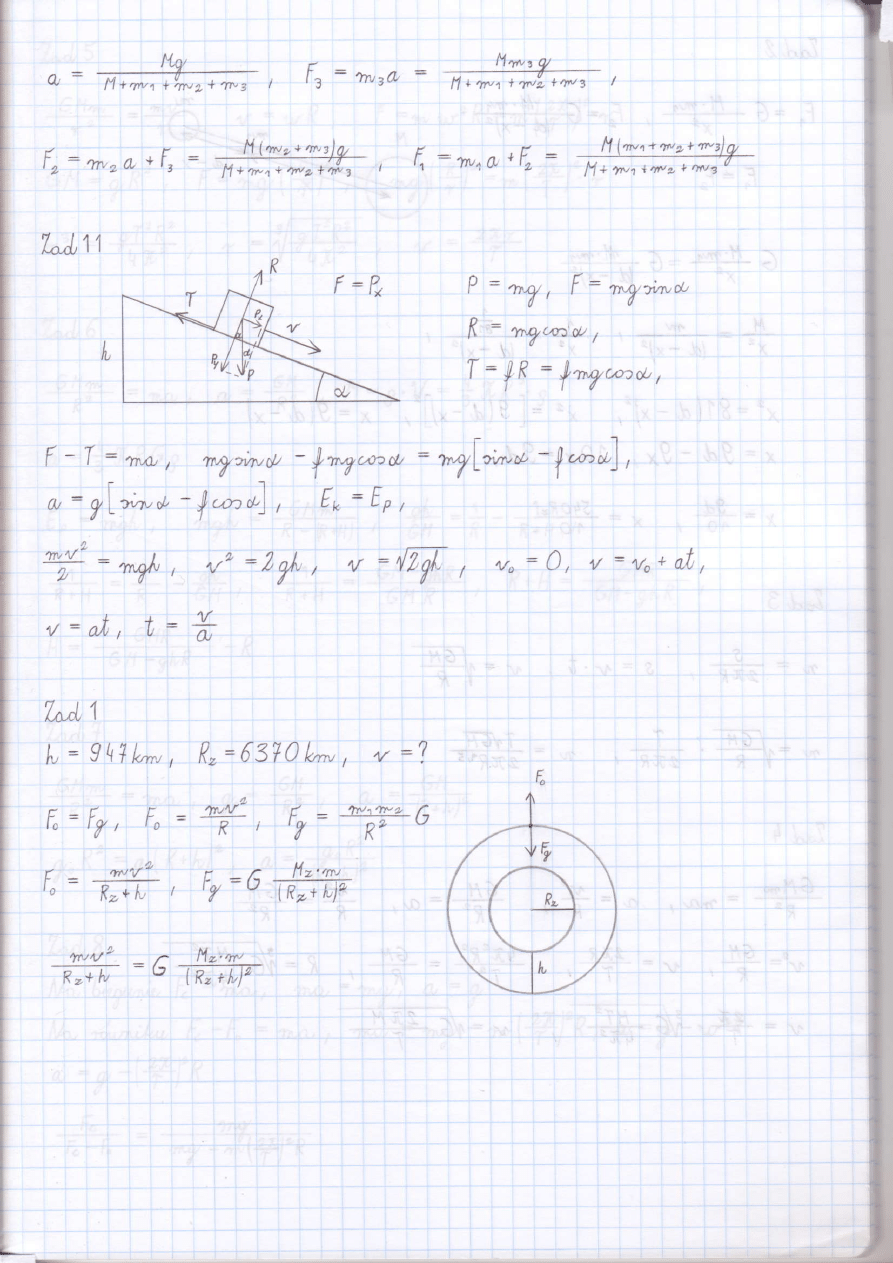 a = Mg / (M+m₁+m₂+m₃), F₃ = m₃a = Mm₃g / (M+m₁+m₂+m₃),
F₂ = m₂a + F₃ = M(m₂+m₃)g / (M+m₁+m₂+m₃), F₁ = m₁a + F₂ = M(m₁+m₂+m₃)g / (M+m₁+m₂+m₃)
Zad 11
R
T
v
h
P
α
F = Pₓ
P = mg, F = mg sinα
R = mg cosα,
T = fR = fmg cosα,
F - T = ma, mg sinα - fmg cosα = mg[sinα - f cosα],
a = g[sinα - f cosα], Eₖ = Eₚ,
mv²/2 = mgh, v² = 2gh, v = √2gh, v₀ = 0, v = v₀ + at,
v = at, t = v/a
Zad 1
h = 947 km, R_z = 6370 km, v = ?
F₀ = F_g, F₀ = mv²/R, F_g = m₁m₂/R² G
F₀ = mv² / (R_z+h), F_g = G M_z·m / (R_z+h)²
mv² / (R_z+h) = G M_z·m / (R_z+h)²
F₀
F_g
R_z
h